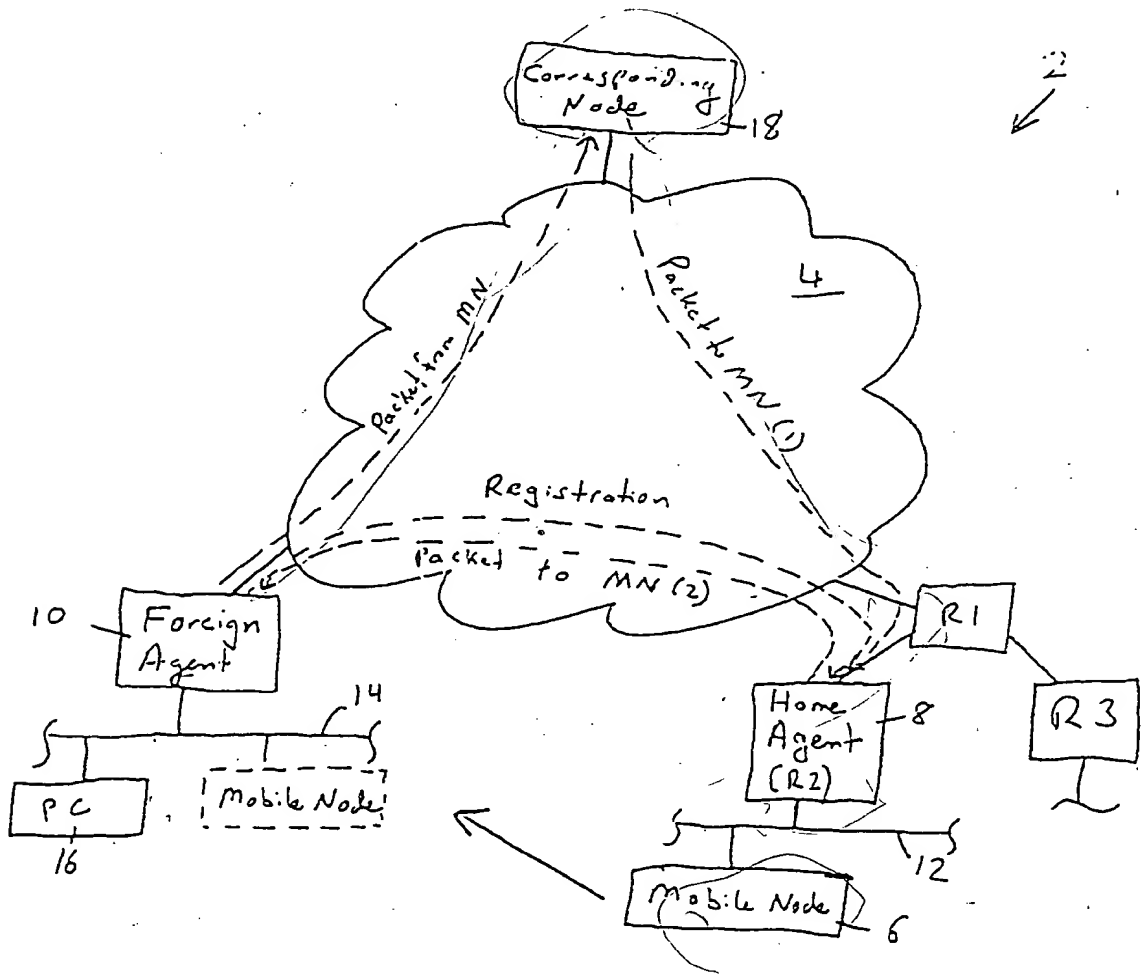 Corresponding
Node
18
2
4
Packet from MN.
Packet to MN (1)
Registration
Packet to MN (2)
10
Foreign
Agent
R1
14
Home
Agent
(R2)
8
R3
PC
Mobile Node
16
12
Mobile Node
6